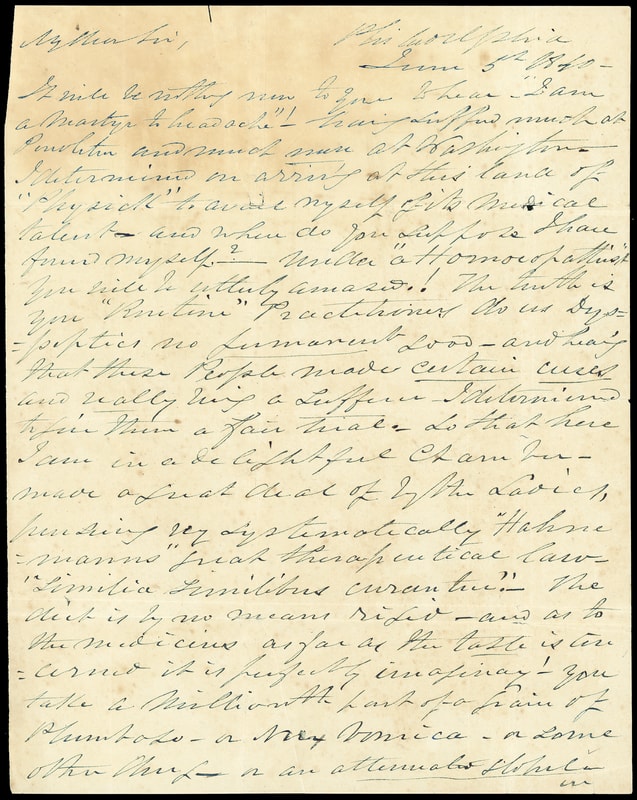 My dear Sir,
Philadelphia
June 5th 1840 -
It will be nothing new to you to hear "I am
a Martyr to headache"! having suffered much at
Pendleton and much more at Washington -
I determined on arriving at this land of
"Physick" to avail myself of its Medical
talent - and where do you suppose I have
found myself? - Under "a Homoeopathist"
you will be utterly amazed! The truth is
you "Routine" Practitioners do us Dys=
=peptics no permanent good - and hearing
that these People made certain cures
and really being a sufferer - I determined
to give them a fair trial - So that here
I am in a delightful Chamber -
made a great deal of by the Ladies,
pursuing very systematically "Hahne
=manns" great therapeutical law -
"Similia Similibus curantur"! - The
diet is by no means rigid - and as to
the medicines as far as the taste is con
=cerned it is perfectly imaginary! you
take a Millionth part of a Grain of
- or Nux Vomica - or some
other drug - or an attenuated
in